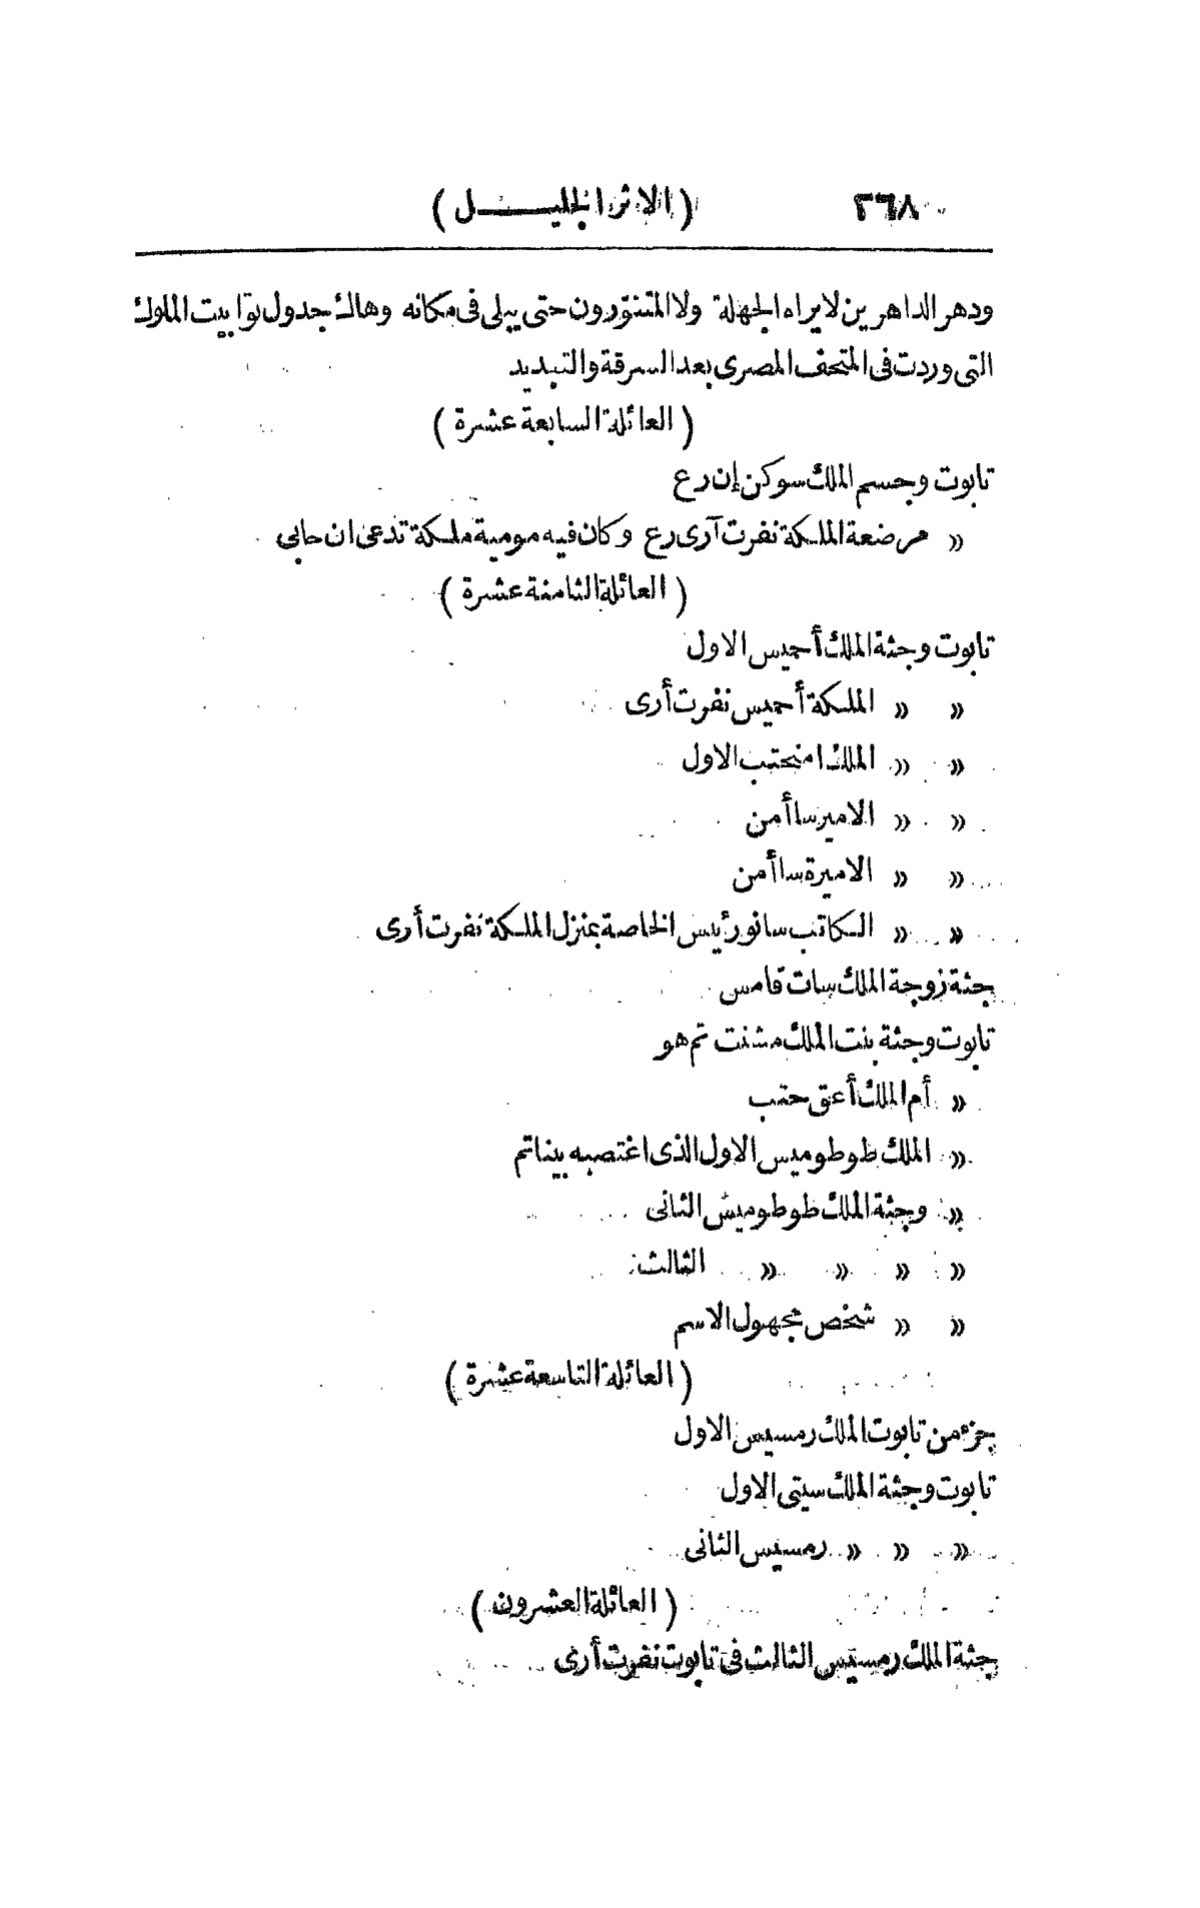 ٢٦٨ (الاثر الجليل)
ودهر الداهرين لا يراه الجهلة ولا المتنورون حتى يبلى فى مكانه وهاك جدول توابيت الملوك
التى وردت فى المتحف المصرى بعد السرقة والتبديد
(العائلة السابعة عشرة)
تابوت وجسم الملك سوكن إن رع
« مرضعة الملكة نفرت آرى رع وكان فيه مومية ملكة تدعى ان حابى
(العائلة الثامنة عشرة)
تابوت وجثة الملك أحميس الاول
« « الملكة أحميس نفرت أرى
« « الملك امنحتب الاول
« « الامير سا أمن
« « الاميرة سا أمن
« « الكاتب سانو رئيس الخاصة بمنزل الملكة نفرت أرى
جثة زوجة الملك سات قامس
تابوت وجثة بنت الملك مشنت تم هو
« أم الملك أعق حتب
« الملك طوطوميس الاول الذى اغتصبه بيناتم
« وجثة الملك طوطوميس الثانى
« « « « الثالث
« « شخص مجهول الاسم
(العائلة التاسعة عشرة)
جزء من تابوت الملك رمسيس الاول
تابوت وجثة الملك سيتى الاول
« « « رمسيس الثانى
(العائلة العشرون)
جثة الملك رمسيس الثالث فى تابوت نفرت أرى